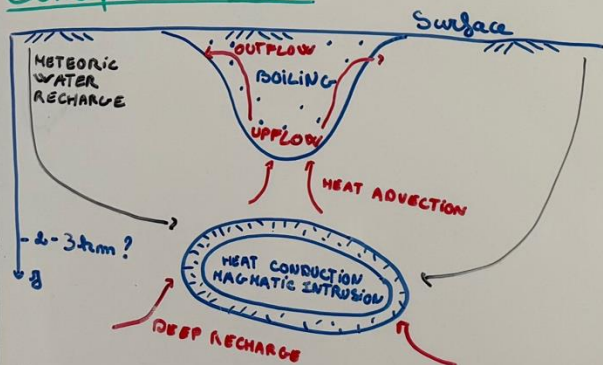 Surface
METEORIC
WATER
RECHARGE
OUTFLOW
BOILING
UPFLOW
HEAT ADVECTION
- 2-3 km ?
HEAT CONDUCTION
MAGMATIC INTRUSION
DEEP RECHARGE